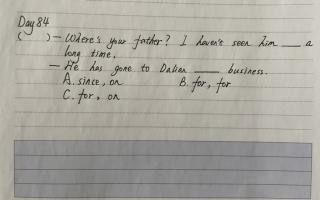 Day 84
( ) — Where's your father? I haven't seen him ___ a
long time.
— He has gone to Dalian ____ business.
A. since, on B. for, for
C. for, on